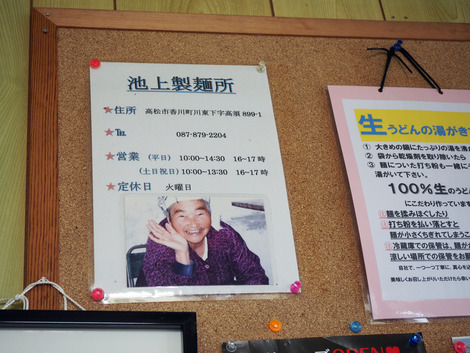 池上製麺所
★住所 高松市香川町川東下字高須899-1
★℡ 087-879-2204
★営業 (平日) 10:00~14:30 16~17時
(土日祝日) 10:00~13:30 16~17時
★定休日 火曜日
生うどんの湯がき
① 大きめの鍋にたっぷりの湯を沸か
② 袋から乾燥剤を取り除いたら
③ 麺についた打ち粉も一緒に
湯がいて下さい。
100%生のうど
にこだわり作っています
麺を揉みほぐしたり
打ち粉を払い落とすと
麺が小さくちぎれてしまうこ
冷蔵庫での保管は、麺が
涼しい場所での保管をお願
自社で、一つ一つ丁寧に、真心を込
美味しくお召し上がりいただけたら幸い
OPEN